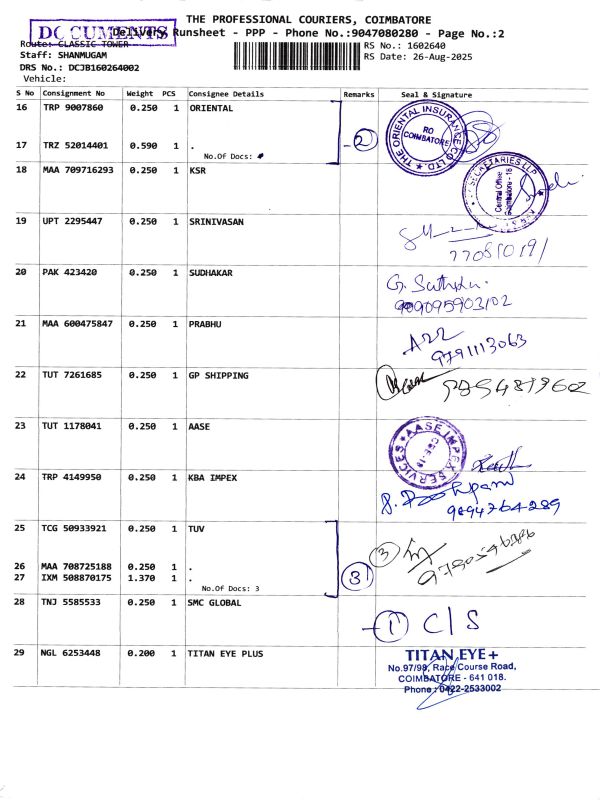 THE PROFESSIONAL COURIERS, COIMBATORE
DOCUMENTS
Delivery Runsheet - PPP - Phone No.:9047080280 - Page No.:2
Route: CLASSIC TOWER
RS No.: 1602640
Staff: SHANMUGAM
RS Date: 26-Aug-2025
DRS No.: DCJB160264002
Vehicle:
S No Consignment No Weight PCS Consignee Details Remarks Seal & Signature
16 TRP 9007860 0.250 1 ORIENTAL
THE ORIENTAL INSURANCE CO. LTD.
RO
COIMBATORE
2
17 TRZ 52014401 0.590 1 .
No.Of Docs:
18 MAA 709716293 0.250 1 KSR
SECRETARIES LLP
Central Office
Coimbatore - 18
19 UPT 2295447 0.250 1 SRINIVASAN
20 PAK 423420 0.250 1 SUDHAKAR
21 MAA 600475847 0.250 1 PRABHU
9791113063
22 TUT 7261685 0.250 1 GP SHIPPING
23 TUT 1178041 0.250 1 AASE
AASE IMPEX SERVICES
CBE-18
24 TRP 4149950 0.250 1 KBA IMPEX
9894764289
25 TCG 50933921 0.250 1 TUV
3
26 MAA 708725188 0.250 1 .
27 IXM 508870175 1.370 1 .
3
No.Of Docs: 3
28 TNJ 5585533 0.250 1 SMC GLOBAL
1 C/S
29 NGL 6253448 0.200 1 TITAN EYE PLUS
TITAN EYE+
No.97/98, Race Course Road,
COIMBATORE - 641 018.
Phone : 0422-2533002